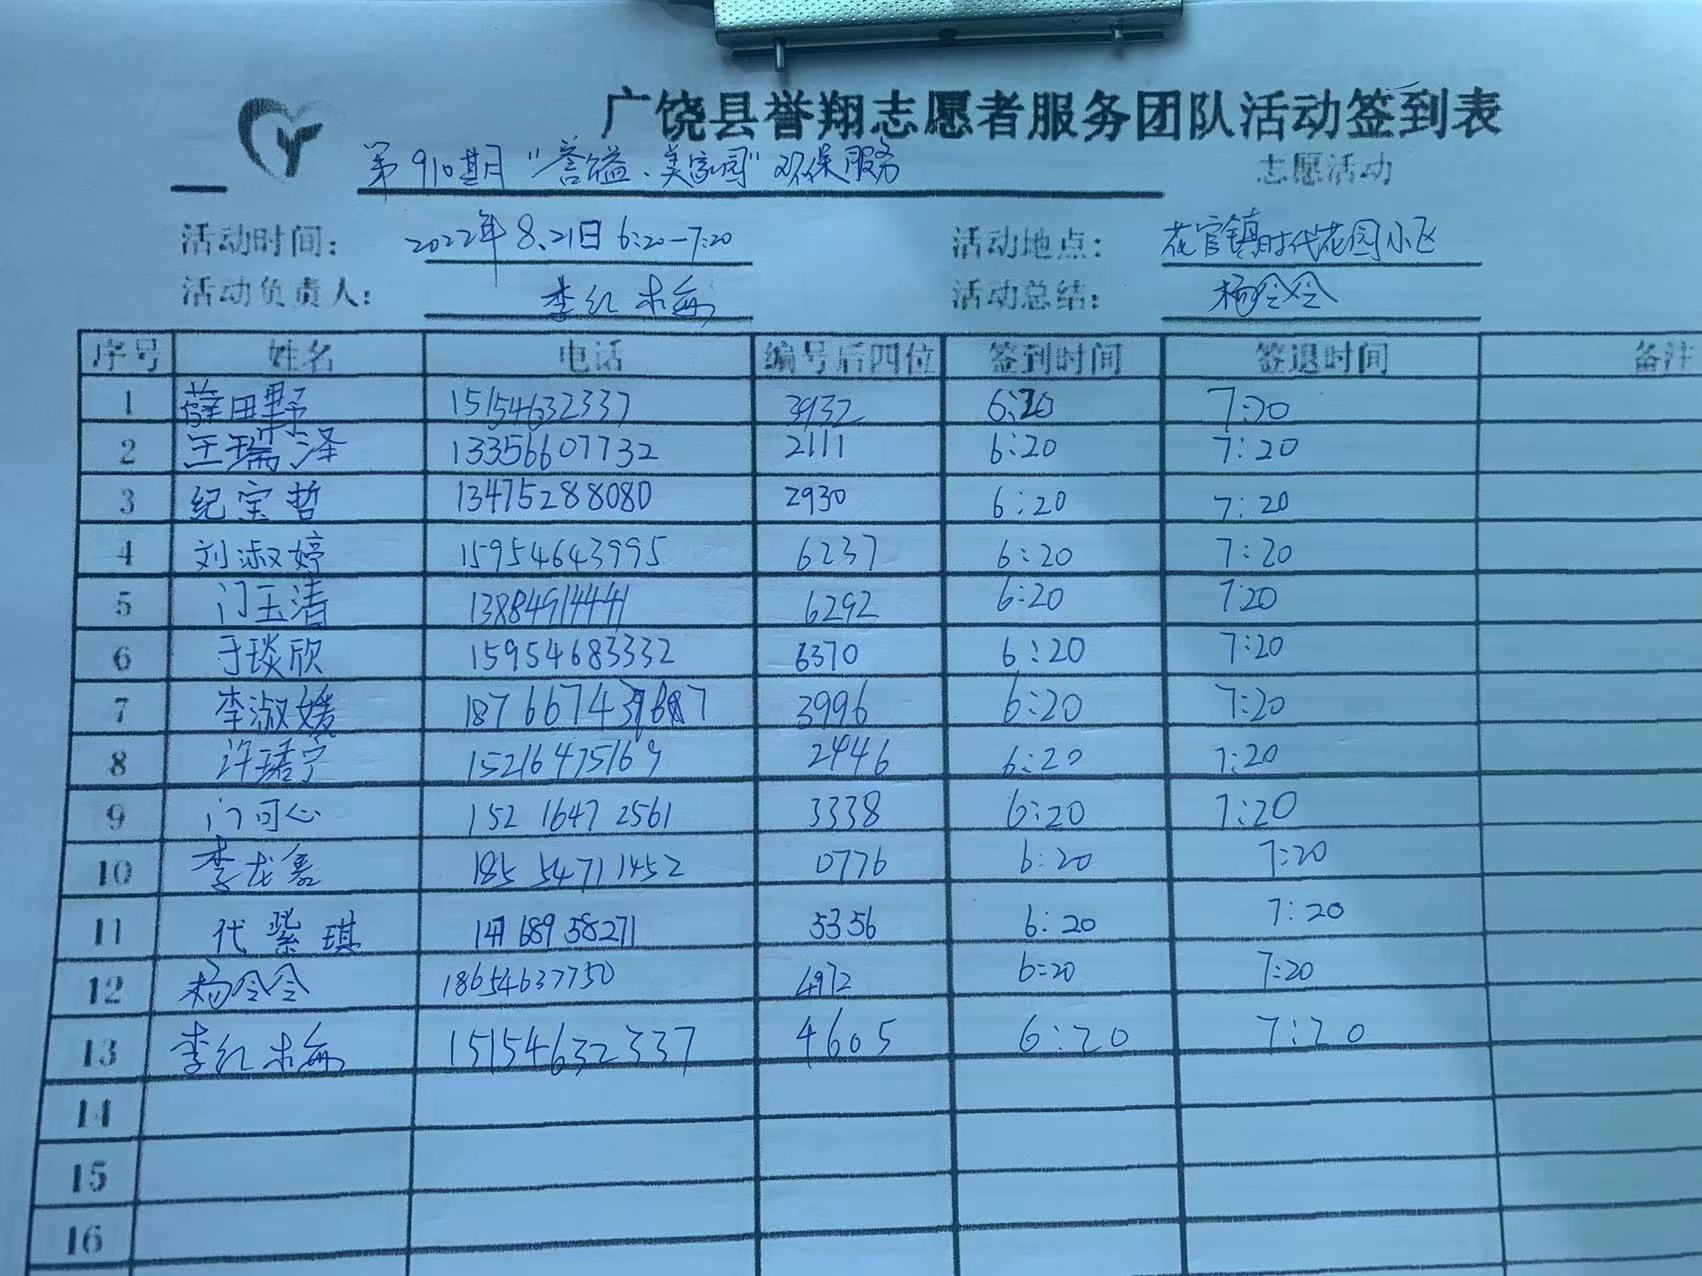 广饶县誉翔志愿者服务团队活动签到表
第910期 "誉镒、美家园" 环保服务 志愿活动
活动时间: 2022年8.21日 6:20-7:20 活动地点: 花官镇时代花园小区
活动负责人: 李红梅 活动总结: 杨令令
序号 姓名 电话 编号后四位 签到时间 签退时间 备注
1 薛田野 15154632337 3932 6:20 7:20
2 王瑞泽 13356607732 2111 6:20 7:20
3 纪宝哲 13475288080 2930 6:20 7:20
4 刘淑婷 15954643995 6237 6:20 7:20
5 门玉清 13884914441 6292 6:20 7:20
6 于琰欣 15954683332 6370 6:20 7:20
7 李淑媛 3996 6:20 7:20
8 许珺宁 15216475169 2446 6:20 7:20
9 门可心 152 1647 2561 3338 6:20 7:20
10 李龙 185 5471 1452 0776 6:20 7:20
11 代紫琪 5356 6:20 7:20
12 杨令令 18654637750 4972 6:20 7:20
13 李红梅 15154632337 4605 6:20 7:20
14
15
16